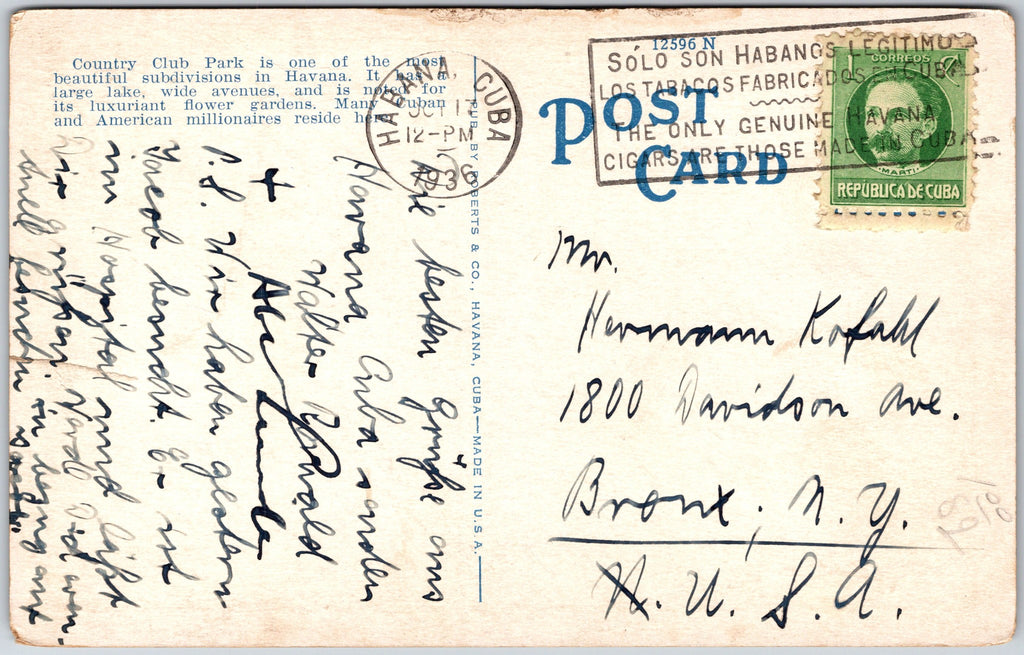 Country Club Park is one of the most
beautiful subdivisions in Havana. It has a
large lake, wide avenues, and is noted for
its luxuriant flower gardens. Many Cuban
and American millionaires reside here.
HABANA, CUBA
OCT 17
12-PM
1936
12596 N
POST
CARD
SÓLO SON HABANOS LEGITIMOS
LOS TABACOS FABRICADOS EN CUBA
THE ONLY GENUINE HAVANA
CIGARS ARE THOSE MADE IN CUBA
1 CORREOS
MARTI
REPÚBLICA DE CUBA
PUB. BY ROBERTS & CO., HAVANA, CUBA—MADE IN U.S.A.
Die besten Grüße aus
Havana Cuba senden
Walter
+
P.S. Wir haben gestern
Jacob besucht. Er ist
im Hospital und läßt
Mr.
Hermann Kofahl
1800 Davidson Ave.
Bronx, N.Y.
U.S.A.